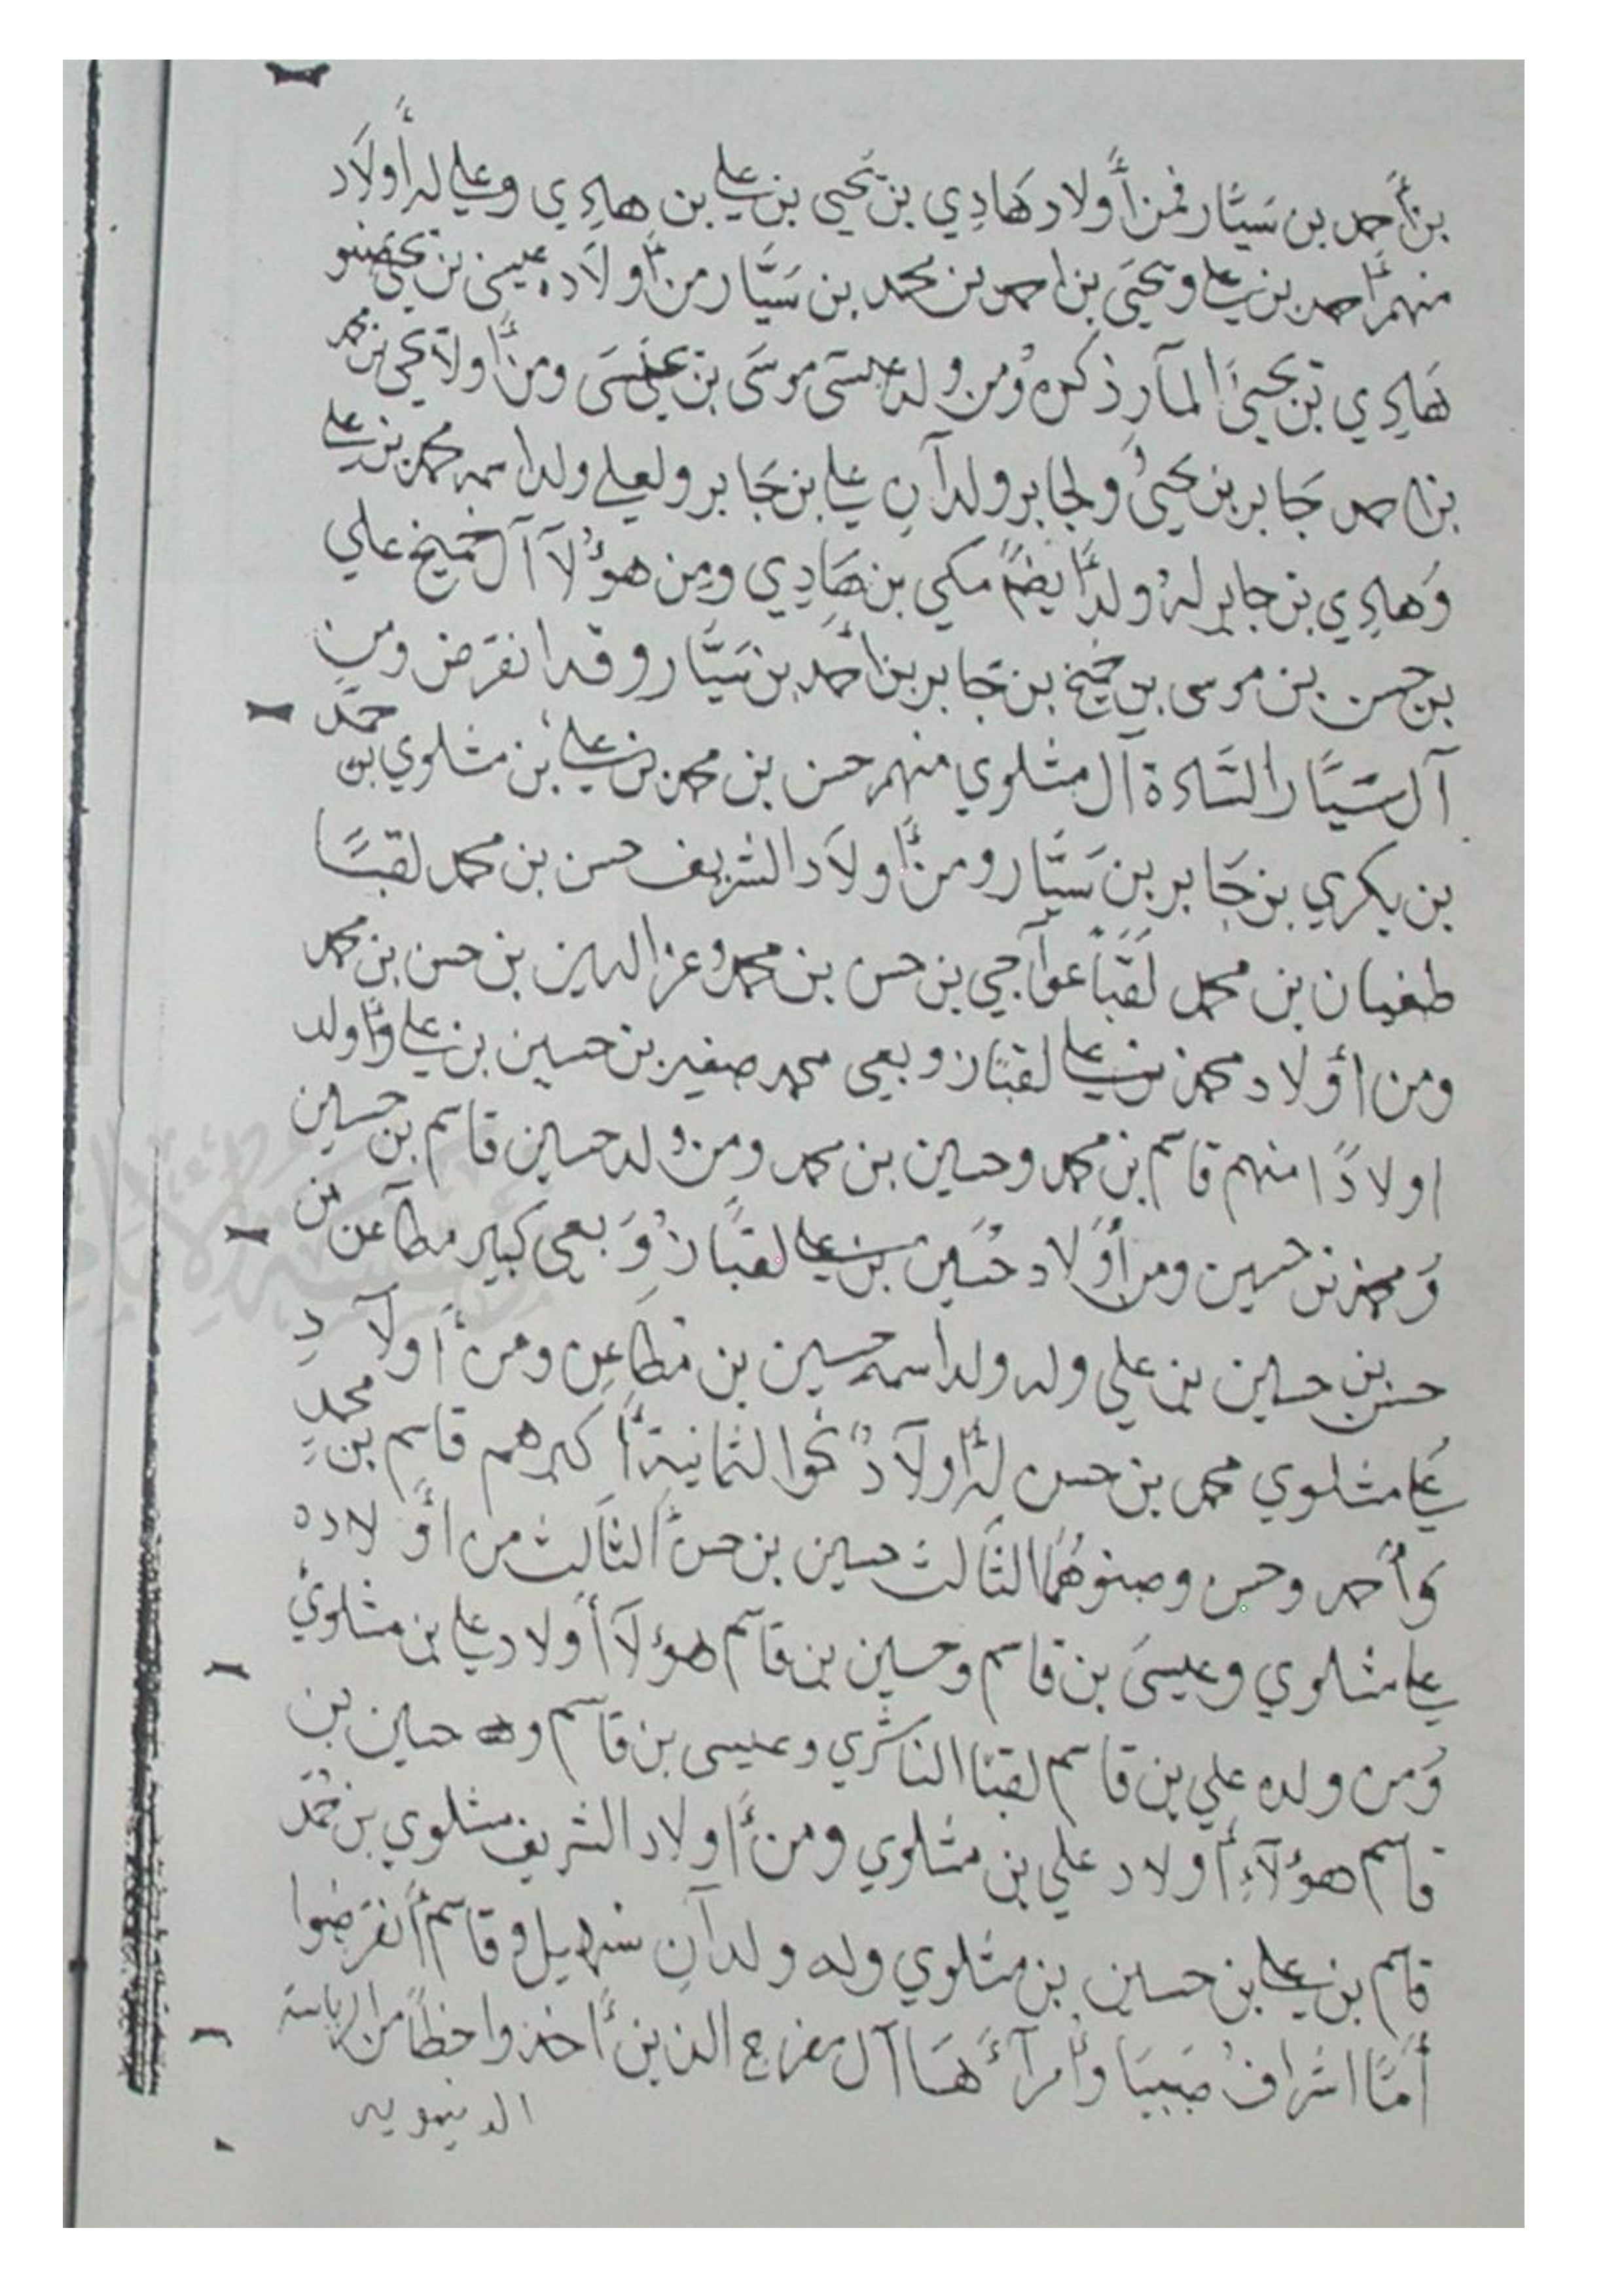 بن أحمد بن سيّار فمن أولاد هَادِي بن يَحيى بن علي بن هادِي وعلي له أولَاد
منهم احمد بن علي ويحيَى بن احمد بن محمد بن سَيَّار من أولَاده عيسى بن يحي صنو
هَادِي بن يحيىَ المآر ذكره ومن ولد عيسَى موسَى بن عيسَى ومن أولاد يحي بن محمد
بن احمد جَابر بن يحيىُ ولجابر ولدآنِ علي بن جَابر ولعلي ولد اسمه محمد بن علي
وَهادِي بن جابر لهُ ولدٌ أيضًا مكي بن هَادِي ومِن هؤلآ آل خميخ علي
بن حسن بن موسى بن خميخ بن جَابر بن أحمد بن سَيَّار وقد انقرَض ومن
آل سَيَّار السَّادة آل مثلوي منهم حسن بن محمد بن علي بن مثلوي بن حمَد
بن بكري بن جَابر بن سَيَّار ومن أولَاد الشريف حسن بن محمد لقبًا
طغيان بن محمد لَقَبًا عوآجي بن حسن بن محمد وعز الدين بن حسن بن محمد
ومن أولاد محمد بن علي لقبًا زوبعي محمد صغير بن حسين بن علي وأولد
اولادًا منهم قاسم بن محمد وحسين بن محمد ومن ولد حسين قاسم بن حسين
وَمحمد بن حسين ومن أولاد حُسَين بن علي لقبًا زُوَبعي كبير مطآعن بن
حسن بن حسين بن علي وله ولد اسمه حسين بن مَطاعِن ومن أولآدِ
علي مثلوي محمد بن حسن لهُ أولآدٌ نحوا لثمانية أكبرهم قاسم بن محمدٍ
وَأحمد وحسن وصنوهُما الثَالث حسين بن حسن الثَالث من أولاده
علي مثلوي وعيسىَ بن قاسم وحسين بن قاسم هؤلآ أولاد علي بن مثلوي
وَمن ولده علي بن قاسم لقبًا الناشري وعيسى بن قاسم وله حسين بن
قاسم هؤلآءِ أولاد علي بن مثلوي ومن أولاد الشريف مثلوي بن محمَّد
قاسم بن علي بن حسين بن مثلوي وله ولدآنِ سُهيل وقاسم أنقرَضوا
أمَّا اشرافُ صَبيَا وأمرآءَهَا آل مفرح الذين أخذوا حظاً من الرياسة
الدينويه